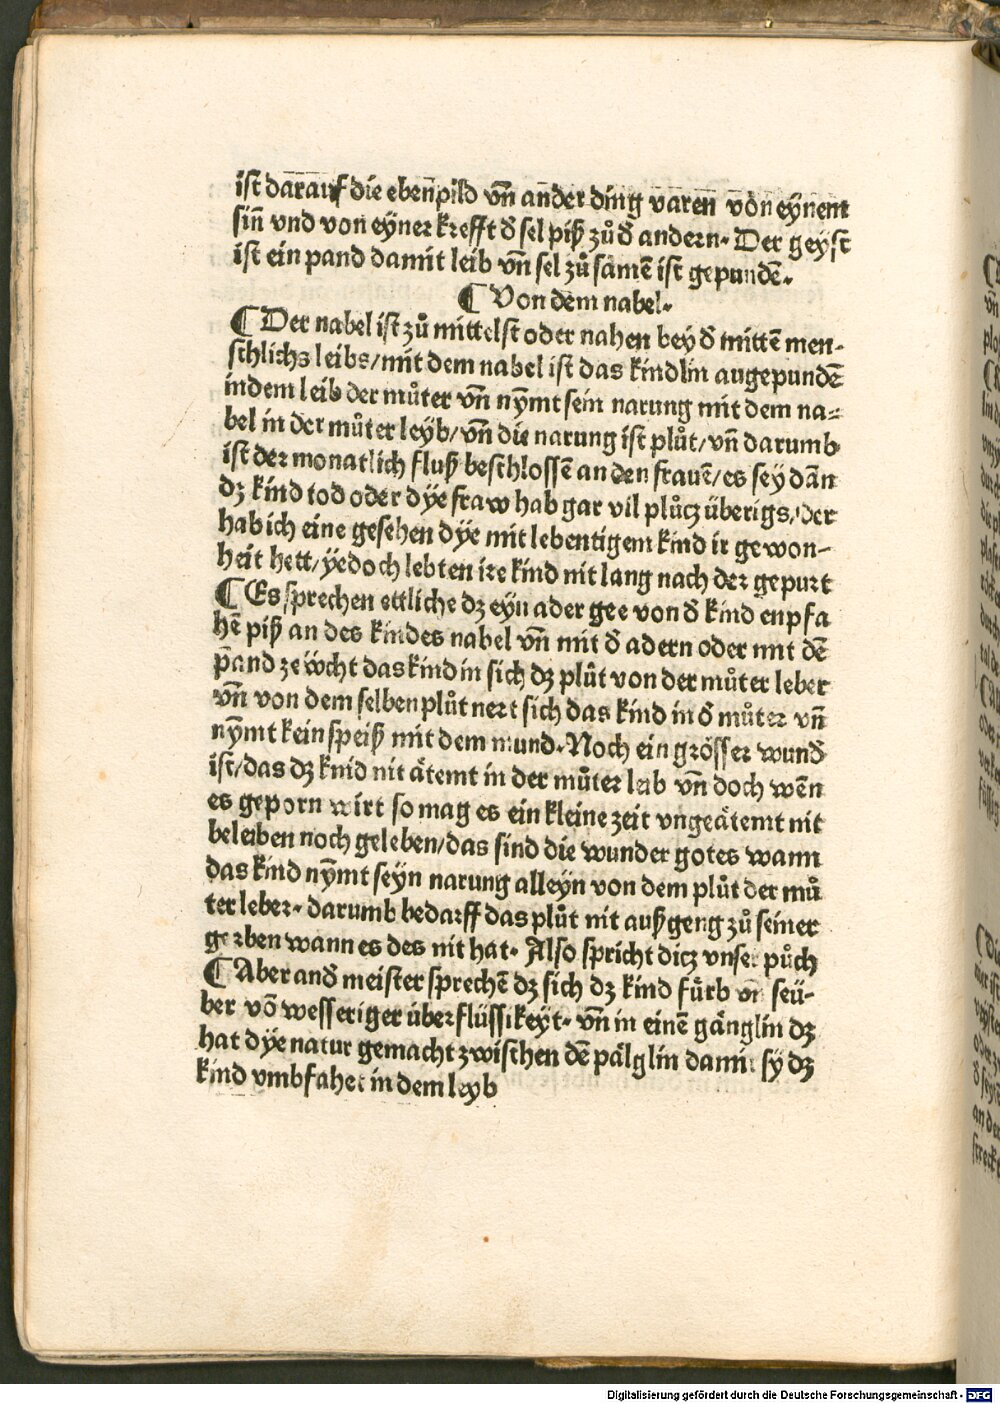 ist darauf die ebenpild vn̄ ander ding varen võ eẏnem
sin̄ vnd von eẏner krefft đ sel piß zů đ andern. Der geyst
ist ein pand damit leib vn̄ sel zů samē ist gepundē.
¶ Von dem nabel.
¶ Der nabel ist zů mittelst oder nahen beẏ đ mittē men-
schlichs leibs/mit dem nabel ist das kindlin augepundē
indem leib der můter vn̄ nẏmt sein narung mit dem na-
bel in der můter leẏb/vn̄ die narung ist plůt/vn̄ darumb
ist der monatlich fluß beschlossē an den frauē/es seẏ dān
dz kind tod oder dẏe fraw hab gar vil plůcz überigs/der
hab ich eine gesehen dẏe mit lebentigem kind ir gewon-
heit hett/ẏedoch lebten ire kind nit lang nach der gepurt
¶ Es sprechen ettliche dz eyn ader gee von đ kind enpfa
hē piß an des kindes nabel vn̄ mit đ adern oder mit dē
pand ze das kind in sich dz plůt von der můter leber
vn̄ von dem selben plůt nert sich das kind in đ můter vn̄
nẏmt kein speiß mit dem mund. Noch ein grösser wunđ
ist/das dz knid nit ätemt in der můter leib vn̄ doch wēn
es geporn wirt so mag es ein kleine zeit vngeätemt nit
beleiben noch geleben/das sind die wunder gotes wann
das kind nẏmt seẏn narung alleẏn von dem plůt der mů
ter leber. darumb bedarff das plůt nit außgeng zů seiner
gerben wann es des nit hat. Also spricht dicz vnser půch
¶ Aber anđ meister sprechē dz sich dz kind fürb vn̄ seü-
ber võ wesseriger überflüssikeẏt. vn̄ in einē gänglin dz
hat dẏe natur gemacht zwischen dē pälglin damit sẏ dz
kind vmbfahet in dem leyb
Digitalisierung gefördert durch die Deutsche Forschungsgemeinschaft - DFG